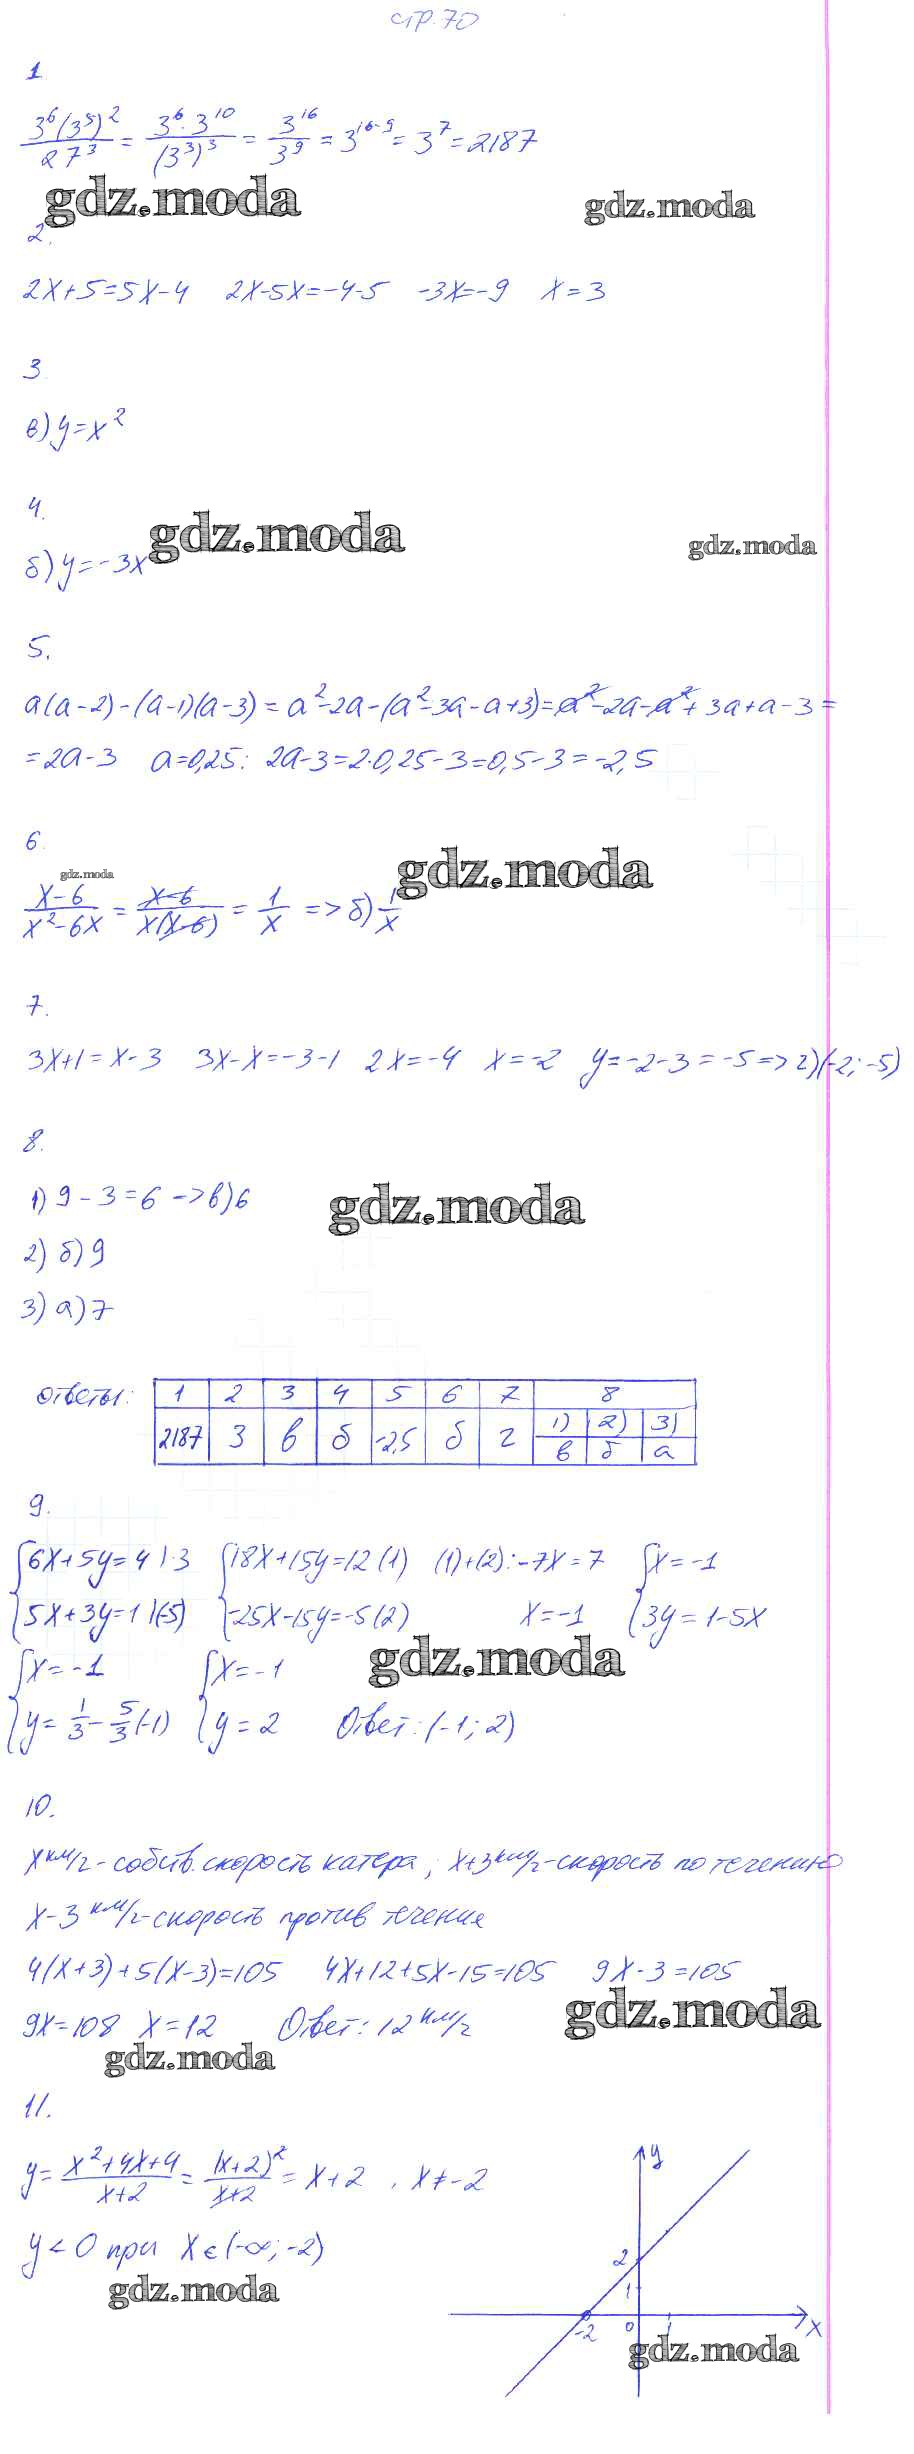 стр. 70
1
3⁶(3⁵)²/27³ = 3⁶·3¹⁰/(3³)³ = 3¹⁶/3⁹ = 3¹⁶⁻⁹ = 3⁷ = 2187
gdz.moda gdz.moda
2.
2x+5=5x-4 2x-5x=-4-5 -3x=-9 x=3
3
в) y=x²
4.
gdz.moda gdz.moda
б) y=-3x
5.
a(a-2)-(a-1)(a-3)=a²-2a-(a²-3a-a+3)=a²-2a-a²+3a+a-3=
=2a-3 a=0,25: 2a-3=2·0,25-3=0,5-3=-2,5
6.
gdz.moda gdz.moda
x-6/x²-6x = x-6/x(x-6) = 1/x => б) 1/x
7.
3x+1=x-3 3x-x=-3-1 2x=-4 x=-2 y=-2-3=-5=> г)(-2;-5)
8.
1) 9-3=6 -> в) 6
gdz.moda
2) б) 9
3) а) 7
ответы: 1 2 3 4 5 6 7 8
1) 2) 3)
2187 3 в б -2,5 б г в б а
9.
{6x+5y=4 |·3 {18x+15y=12 (1) (1)+(2): -7x=7 {x=-1
{5x+3y=1 |(-5) {-25x-15y=-5 (2) x=-1 {3y=1-5x
gdz.moda
{x=-1 {x=-1
{y=1/3-5/3(-1) {y=2 Ответ: (-1; 2)
10.
x км/г - собств. скорость катера; x+3 км/г - скорость по течению
x-3 км/г - скорость против течения
4(x+3)+5(x-3)=105 4x+12+5x-15=105 9x-3=105
gdz.moda
9x=108 x=12 Ответ: 12 км/г
gdz.moda
11.
y=x²+4x+4/x+2 = (x+2)²/x+2 = x+2 , x≠-2
y<0 при x∈(-∞;-2)
gdz.moda
y
2
1
-2 0 1 x
gdz.moda